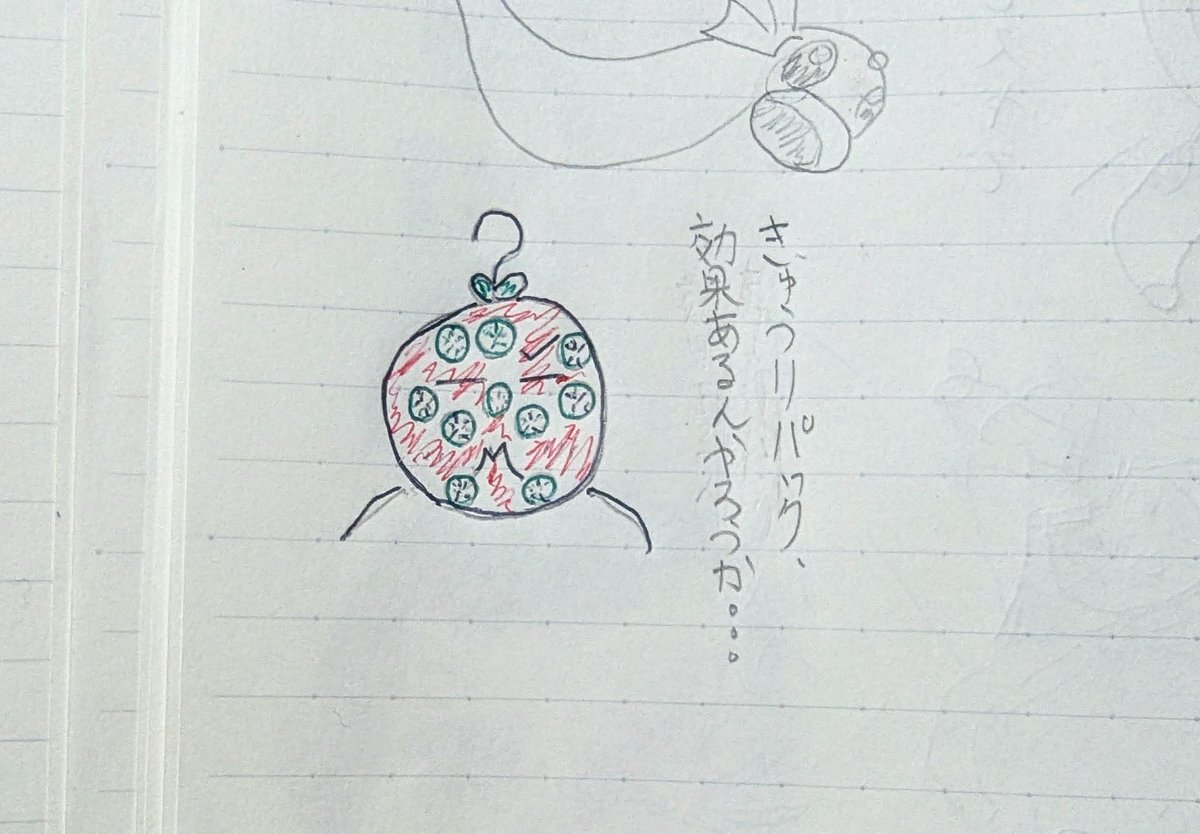 きゅうりパック、
効果あるんやろうか・・・